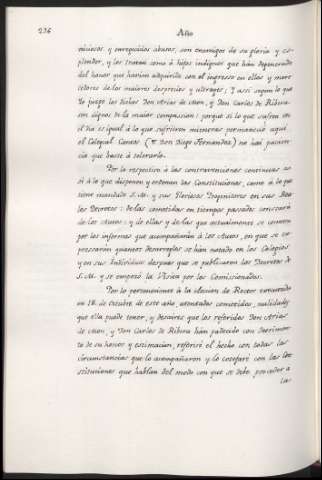 236
Año
viciosos y envegecidos abusos, son enemigos de su gloria y es-
plendor, y los tratan como á hijos indignos que hán degenerado
del honor que havian adquirido con el ingresso en ellos y mere
cedores de los maiores desprecios y ultrages; I assi segun lo que
Yo juzgo los dichos Don Arias de Mon, y Don Carlos de Ribera
son dignos de la maior compassion: porque si lo que sufren en
el dia es igual á lo que sufrieron mientras permaneció aqui
el Colegial Cantos (Don Diego Fernandez) no hai pacien-
cia que baste á tolerarlo.
Por lo respectivo á las contravenciones continuas as-
si á lo que disponen y ordenan las Constituciones, como á lo que
tiene mandado S. M. y sus Gloriosos Progenitores en sus Rea
les Decretos: de las cometidas en tiempos passados constará
de los Autos: y de ellas y de las que actualmente se cometen
por los informes que acompañarán á los Autos, en que se ex-
pressarán quantos desarreglos se hán notado en los Colegios
y en sus Individuos despues que se publicaron los Decretos de
S. M. y se empezó la Visita por los Comissionados.
Por lo perteneciente á la eleccion de Rector executada
en 18. de Octubre de este año, atentados cometidos, nulidades
que ella puede tener, y desaires que los referidos Don Arias
de Mon, y Don Carlos de Ribera hán padecido con detrimen-
to de su honor y estimacion, referiré el hecho con todas las
circunstancias que lo acompañaron y lo cotejaré con las Con
stituciones que hablan del modo con que se debe proceder á
las